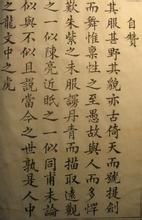 自赞
其服甚野其貌亦古倚天而號提劍
而舞惟禀性之至愚故與人而多忤
歎朱紫之未服謾丹青而描取遠觀
之一似陳亮近眂之一似同甫未論
似與不似且說當今之世孰是人中
之龍文中之虎